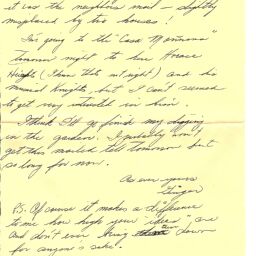 it was the neighbors most - slightly
misplaced by two houses!
I'm going to the "Casa Montana"
Tomorrow night to hear Horace
Height (I know that isn't right) and his
musical Knights, but I can't seemed
to get very interested in him.
I think I'll go finish my digging
in the garden. I probably won't
get this mailed till Tomorrow but
so long for now.
As ever yours
Ginger
P.S. Of course it makes a difference
to me how high your "ideas" are
and don't ever bring them down
for anyone's sake.